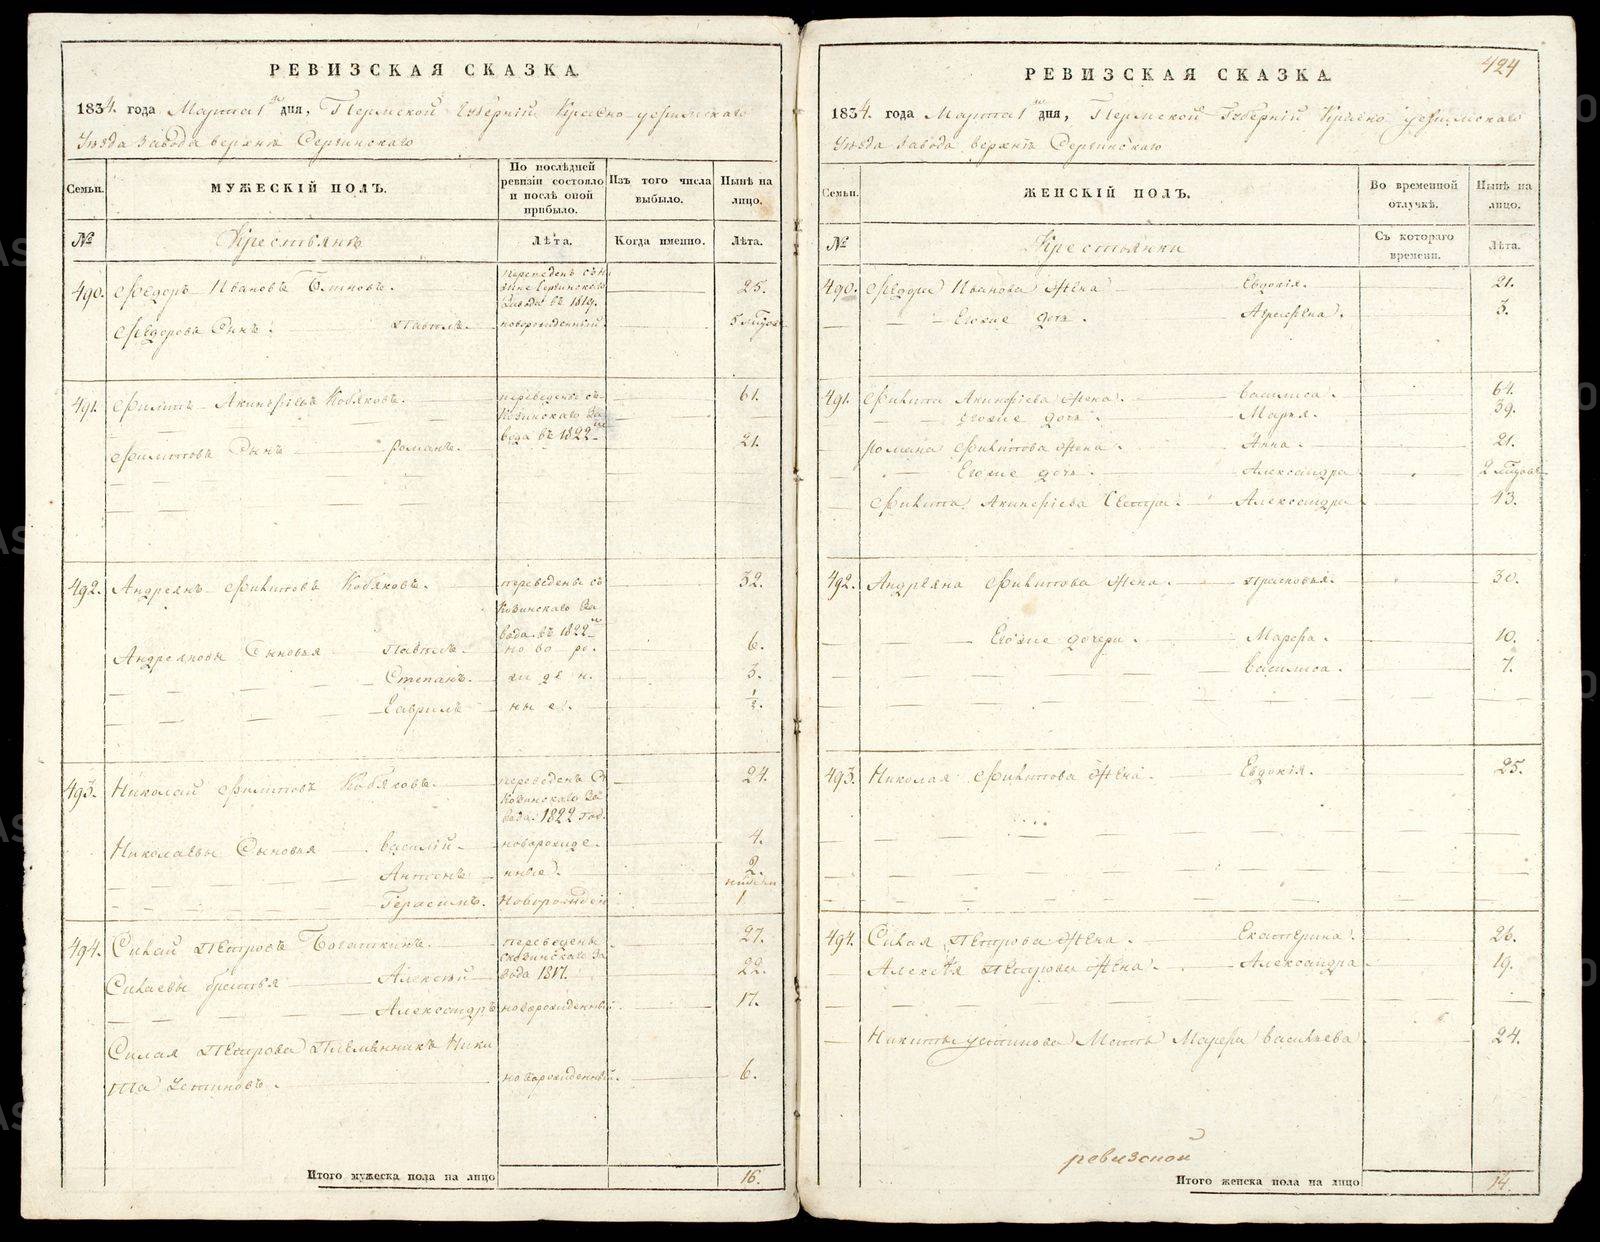 РЕВИЗСКАЯ СКАЗКА.
1834. года Марта 1 дня, Пермской Губернїи Красно уфимскаго
Уѣзда Завода верхнѣ Сергинскаго
Семьи.
МУЖЕСКІЙ ПОЛЪ.
По послѣдней ревизіи состояло и послѣ оной прибыло.
Изъ того числа выбыло.
Нынѣ на лицо.
№
Крестьянѣ
Лѣта.
Когда именно.
Лѣта.
490. Федоръ Ивановъ 25.
Сергинскаго
завода въ 1819.
Федорова Сынъ. Павелъ. новорожденный. 5
491. Филипъ Акинфіевъ Кобяковъ. переведенъ съ 61.
Козинскаго За
вода въ 1822
Филиповъ Сынъ Романъ. 21.
492. Андреянъ Филиповъ Кобяковъ. переведенъ съ 32.
Козинскаго За
вода въ 1822
Андреяновы Сыновья Павелъ. ново ро. 6.
Степанъ. жи де н. 3.
Гаврилъ ны е. ½.
493. Николай Филиповъ Кобяковъ. переведенъ С 24.
Козинскаго За
вода. 1822 год.
Николаевы Сыновья Василій новорожде. 4.
Антонъ нные. 2.
недели
Герасимъ. Новорожден 1
494. Силай Петровъ 27.
переведены
скозинскаго За
вода 1817.
Силаевы братья Алексѣй 22.
Александръ новорожденный 17.
Силая Петрова Племянникъ Ники
та Устиновъ. новорожденный. 6.
Итого мужеска пола на лицо 16.
424
РЕВИЗСКАЯ СКАЗКА.
1834. года Марта 1 дня, Пермской Губернїи Красно уфимскаго
Уѣзда Завода верхнѣ Сергинскаго
Семьи.
ЖЕНСКІЙ ПОЛЪ.
Во временной отлучкѣ.
Нынѣ на лицо.
№
Крестьянки
Съ котораго времени.
Лѣта.
490. Федора Иванова жена Евдокія. 21.
Егоже дочь Аграфена. 3.
491. Филипа Акинфіева жена. Василиса. 64.
Егоже дочь. Марья. 39.
Романа Филипова жена. Анна. 21.
Егоже дочь. Александра 2
Филипа Акинфіева Сестра. Александра 43.
492. Андреяна Филипова жена. Прасковья. 30.
Егоже дочери. Марфа. 10.
Василиса. 7.
493. Николая Филипова жена. Евдокія. 25.
494. Силая Петрова жена. Екатерина. 26.
Алексѣя Петрова жена. Александра 19.
Никиты Устинова Мать Марфа Васильева 24.
ревизской
Итого женска пола на лицо 14.